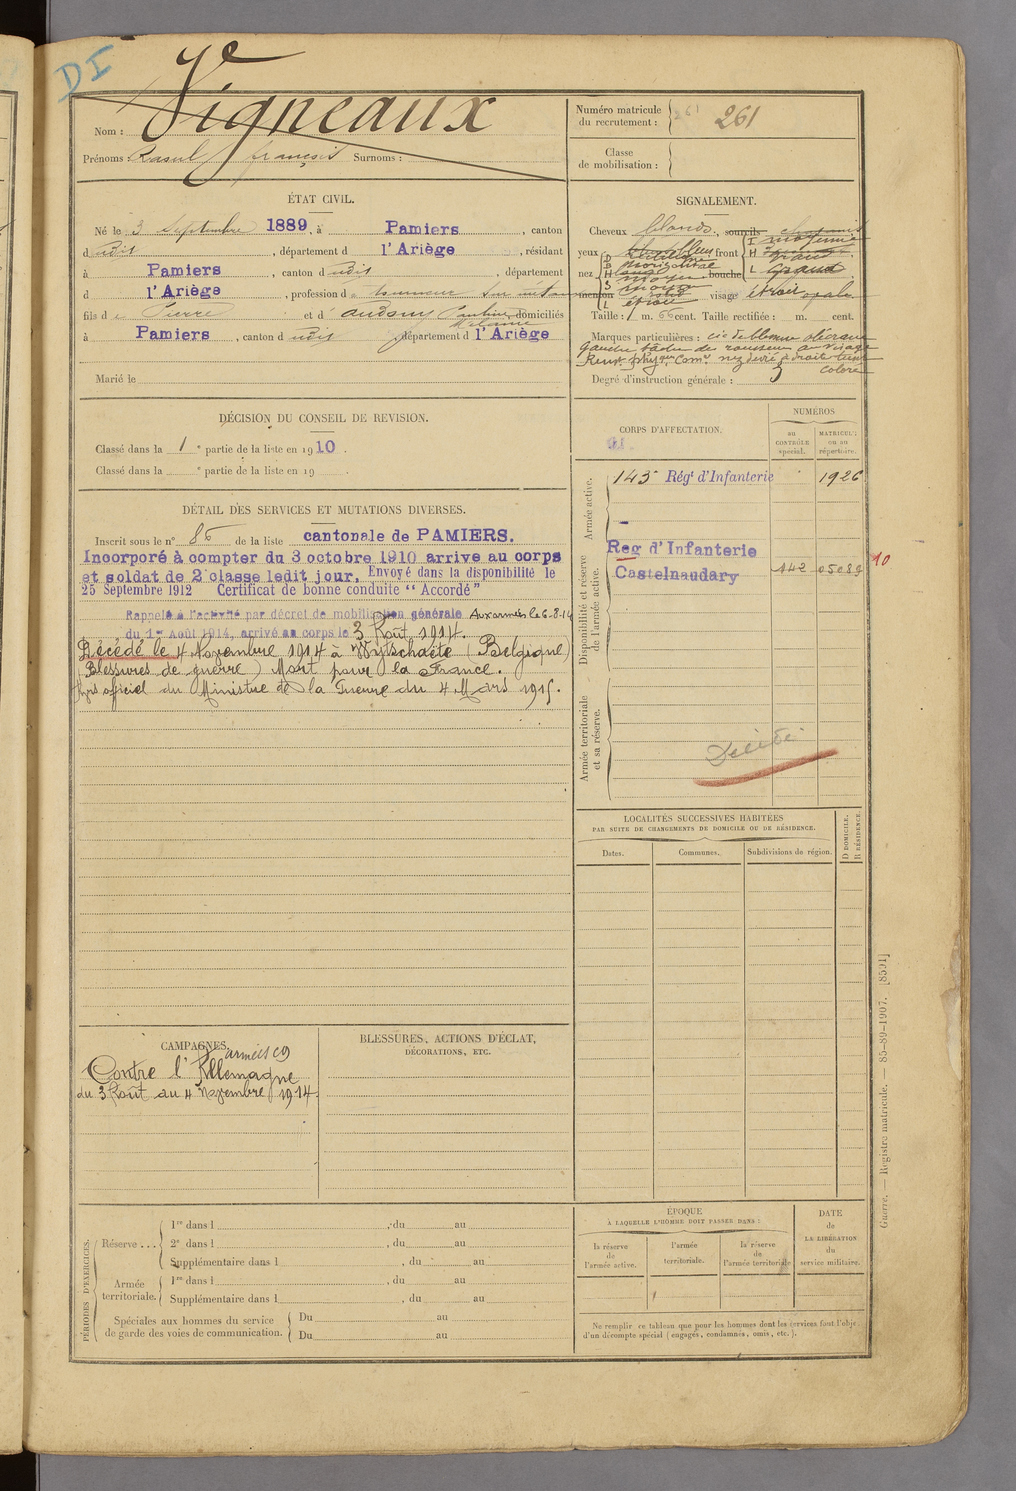 DI
Nom : Vigneaux
Prénoms : Raoul françois Surnoms :
Numéro matricule
du recrutement : 261
Classe
de mobilisation :
ÉTAT CIVIL.
Né le 3 Septembre 1889, à Pamiers, canton
dudit, département d l'Ariège, résidant
à Pamiers, canton dudit, département
d l'Ariège, profession de tourneur sur
fils de Pierre et d' domiciliés
à Pamiers, canton dudit, département d l'Ariège
Marié le
SIGNALEMENT.
Cheveux blonds, sourcils
yeux bleu front
nez bouche
menton visage étroit ovale
Taille : 1 m. 66 cent. Taille rectifiée : m. cent.
Marques particulières :
gauche de rousseur au visage
nez dévié à droite teint
coloré
Degré d'instruction générale : 3
DÉCISION DU CONSEIL DE REVISION.
Classé dans la 1e partie de la liste en 1910.
Classé dans la e partie de la liste en 19
DÉTAIL DES SERVICES ET MUTATIONS DIVERSES.
Inscrit sous le n° 86 de la liste cantonale de PAMIERS.
Incorporé à compter du 3 octobre 1910 arrive au corps
et soldat de 2e classe ledit jour. Envoyé dans la disponibilité le
25 Septembre 1912 Certificat de bonne conduite “ Accordé ”
Rappelé à l'activité par décret de mobilisation générale Aux armées le 6-8-14
du 1er Août 1914, arrivé au corps le 3 Août 1914.
Décédé le 4 Novembre 1914 à Wytschaëte (Belgique)
(Blessures de guerre) Mort pour la France.
Avis officiel du Ministre de la Guerre du 4 Mars 1915.
CORPS D'AFFECTATION.
NUMÉROS
au
CONTRÔLE
spécial.
MATRICULE
ou au
répertoire.
Armée active.
143e Régt d'Infanterie 1926
Disponibilité et réserve
de l'armée active.
Reg d'Infanterie
Castelnaudary 142 05089
10
Armée territoriale
et sa réserve.
Décédé
LOCALITÉS SUCCESSIVES HABITÉES
PAR SUITE DE CHANGEMENTS DE DOMICILE OU DE RÉSIDENCE.
Dates.
Communes.
Subdivisions de région.
D DOMICILE.
R RÉSIDENCE.
CAMPAGNES.
armées
Contre l'Allemagne
du 3 Août au 4 novembre 1914.
BLESSURES, ACTIONS D'ÉCLAT,
DÉCORATIONS, ETC.
PÉRIODES D'EXERCICES.
Réserve ...
1re dans l , du au
2e dans l , du au
Supplémentaire dans l , du au
Armée
territoriale.
1re dans l , du au
Supplémentaire dans l , du au
Spéciales aux hommes du service
de garde des voies de communication.
Du au
Du au
ÉPOQUE
À LAQUELLE L'HOMME DOIT PASSER DANS :
la réserve
de
l'armée active.
l'armée
territoriale.
la réserve
de
l'armée territoriale
DATE
de
LA LIBÉRATION
du
service militaire.
Ne remplir ce tableau que pour les hommes dont les services font l'objet
d'un décompte spécial (engagés, condamnés, omis, etc.).
Guerre. — Registre matricule. — 85-89-1907. [8591]